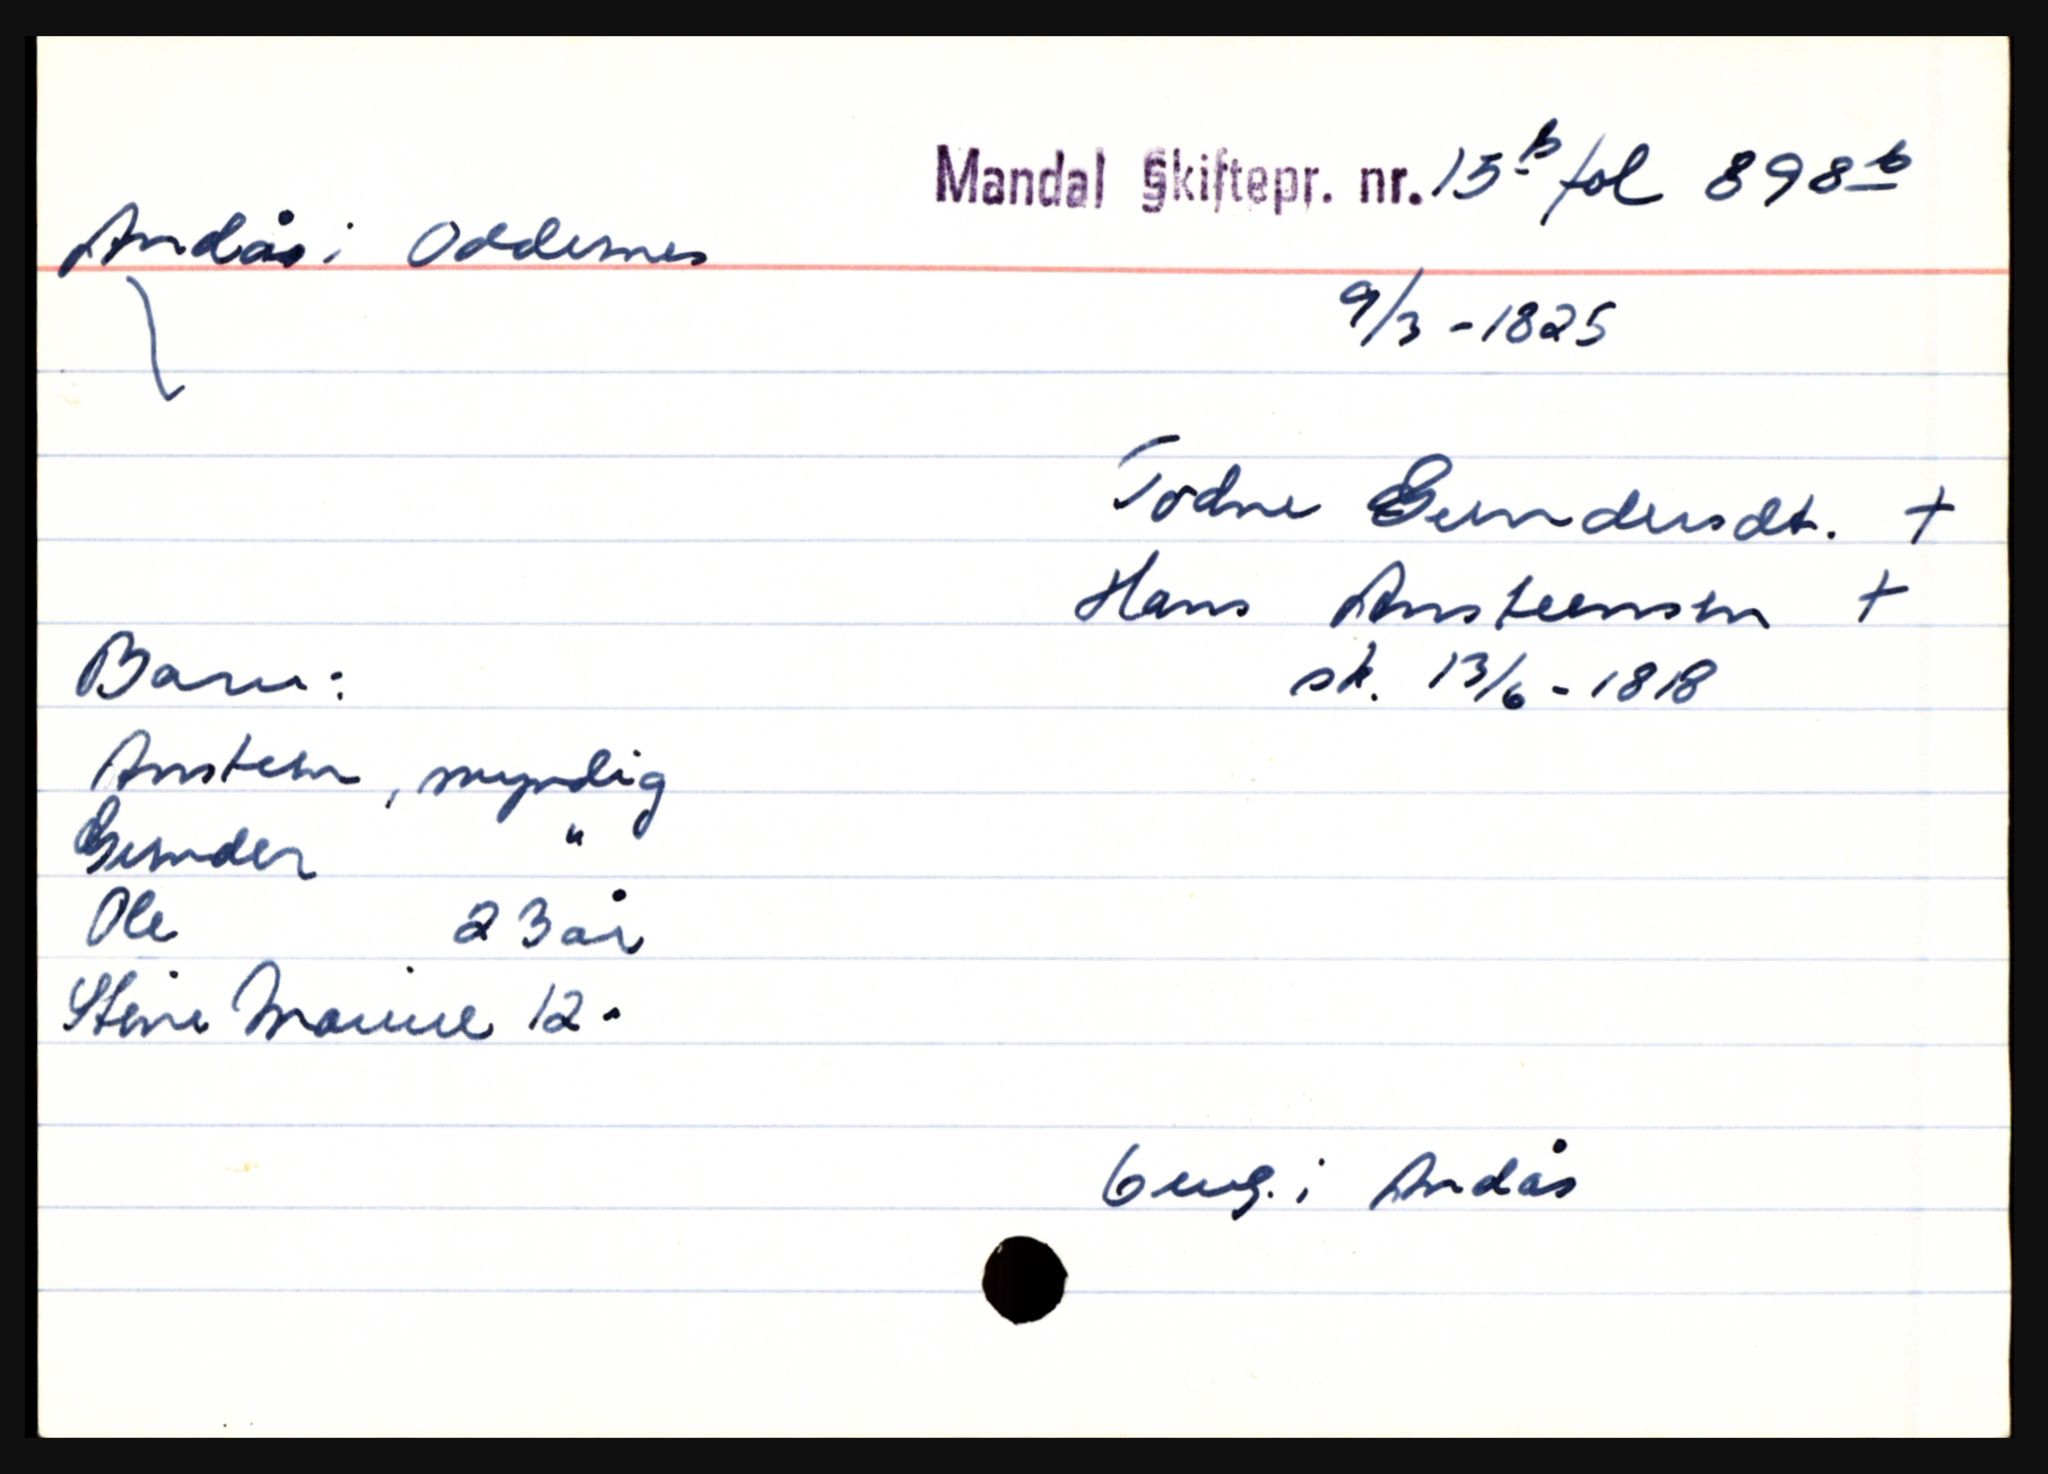 Mandal Skiftepr. nr. 15b fol 898b
Andås i Oddernes
9/3 - 1825
Todne Gundersdt. +
Hans Ansteensen +
sk. 13/6 - 1818
Barn:
Ansten, myndig
Gunder "
Ole 23 år
Stine Marie 12 -
6 eng. i Andås